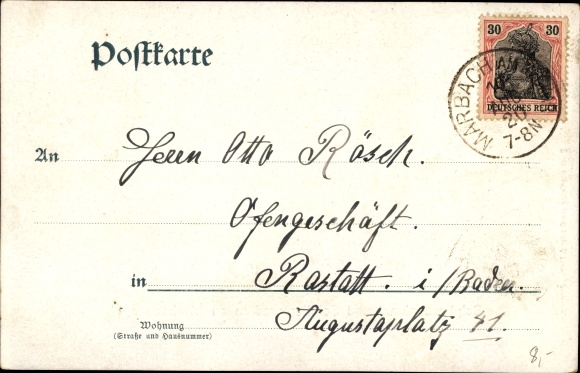 Postkarte
30 30
DEUTSCHES REICH
MARBACH AM
20
7-8N
An Herrn Otto Rösch.
Ofengeschäft.
in Rastatt. i/Baden.
Wohnung
(Straße und Hausnummer)
Augustaplatz 41.
8,-